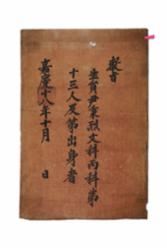 敎旨
生員尹秉烈文科丙科第
十三人及第出身者
嘉慶十八年十月 日